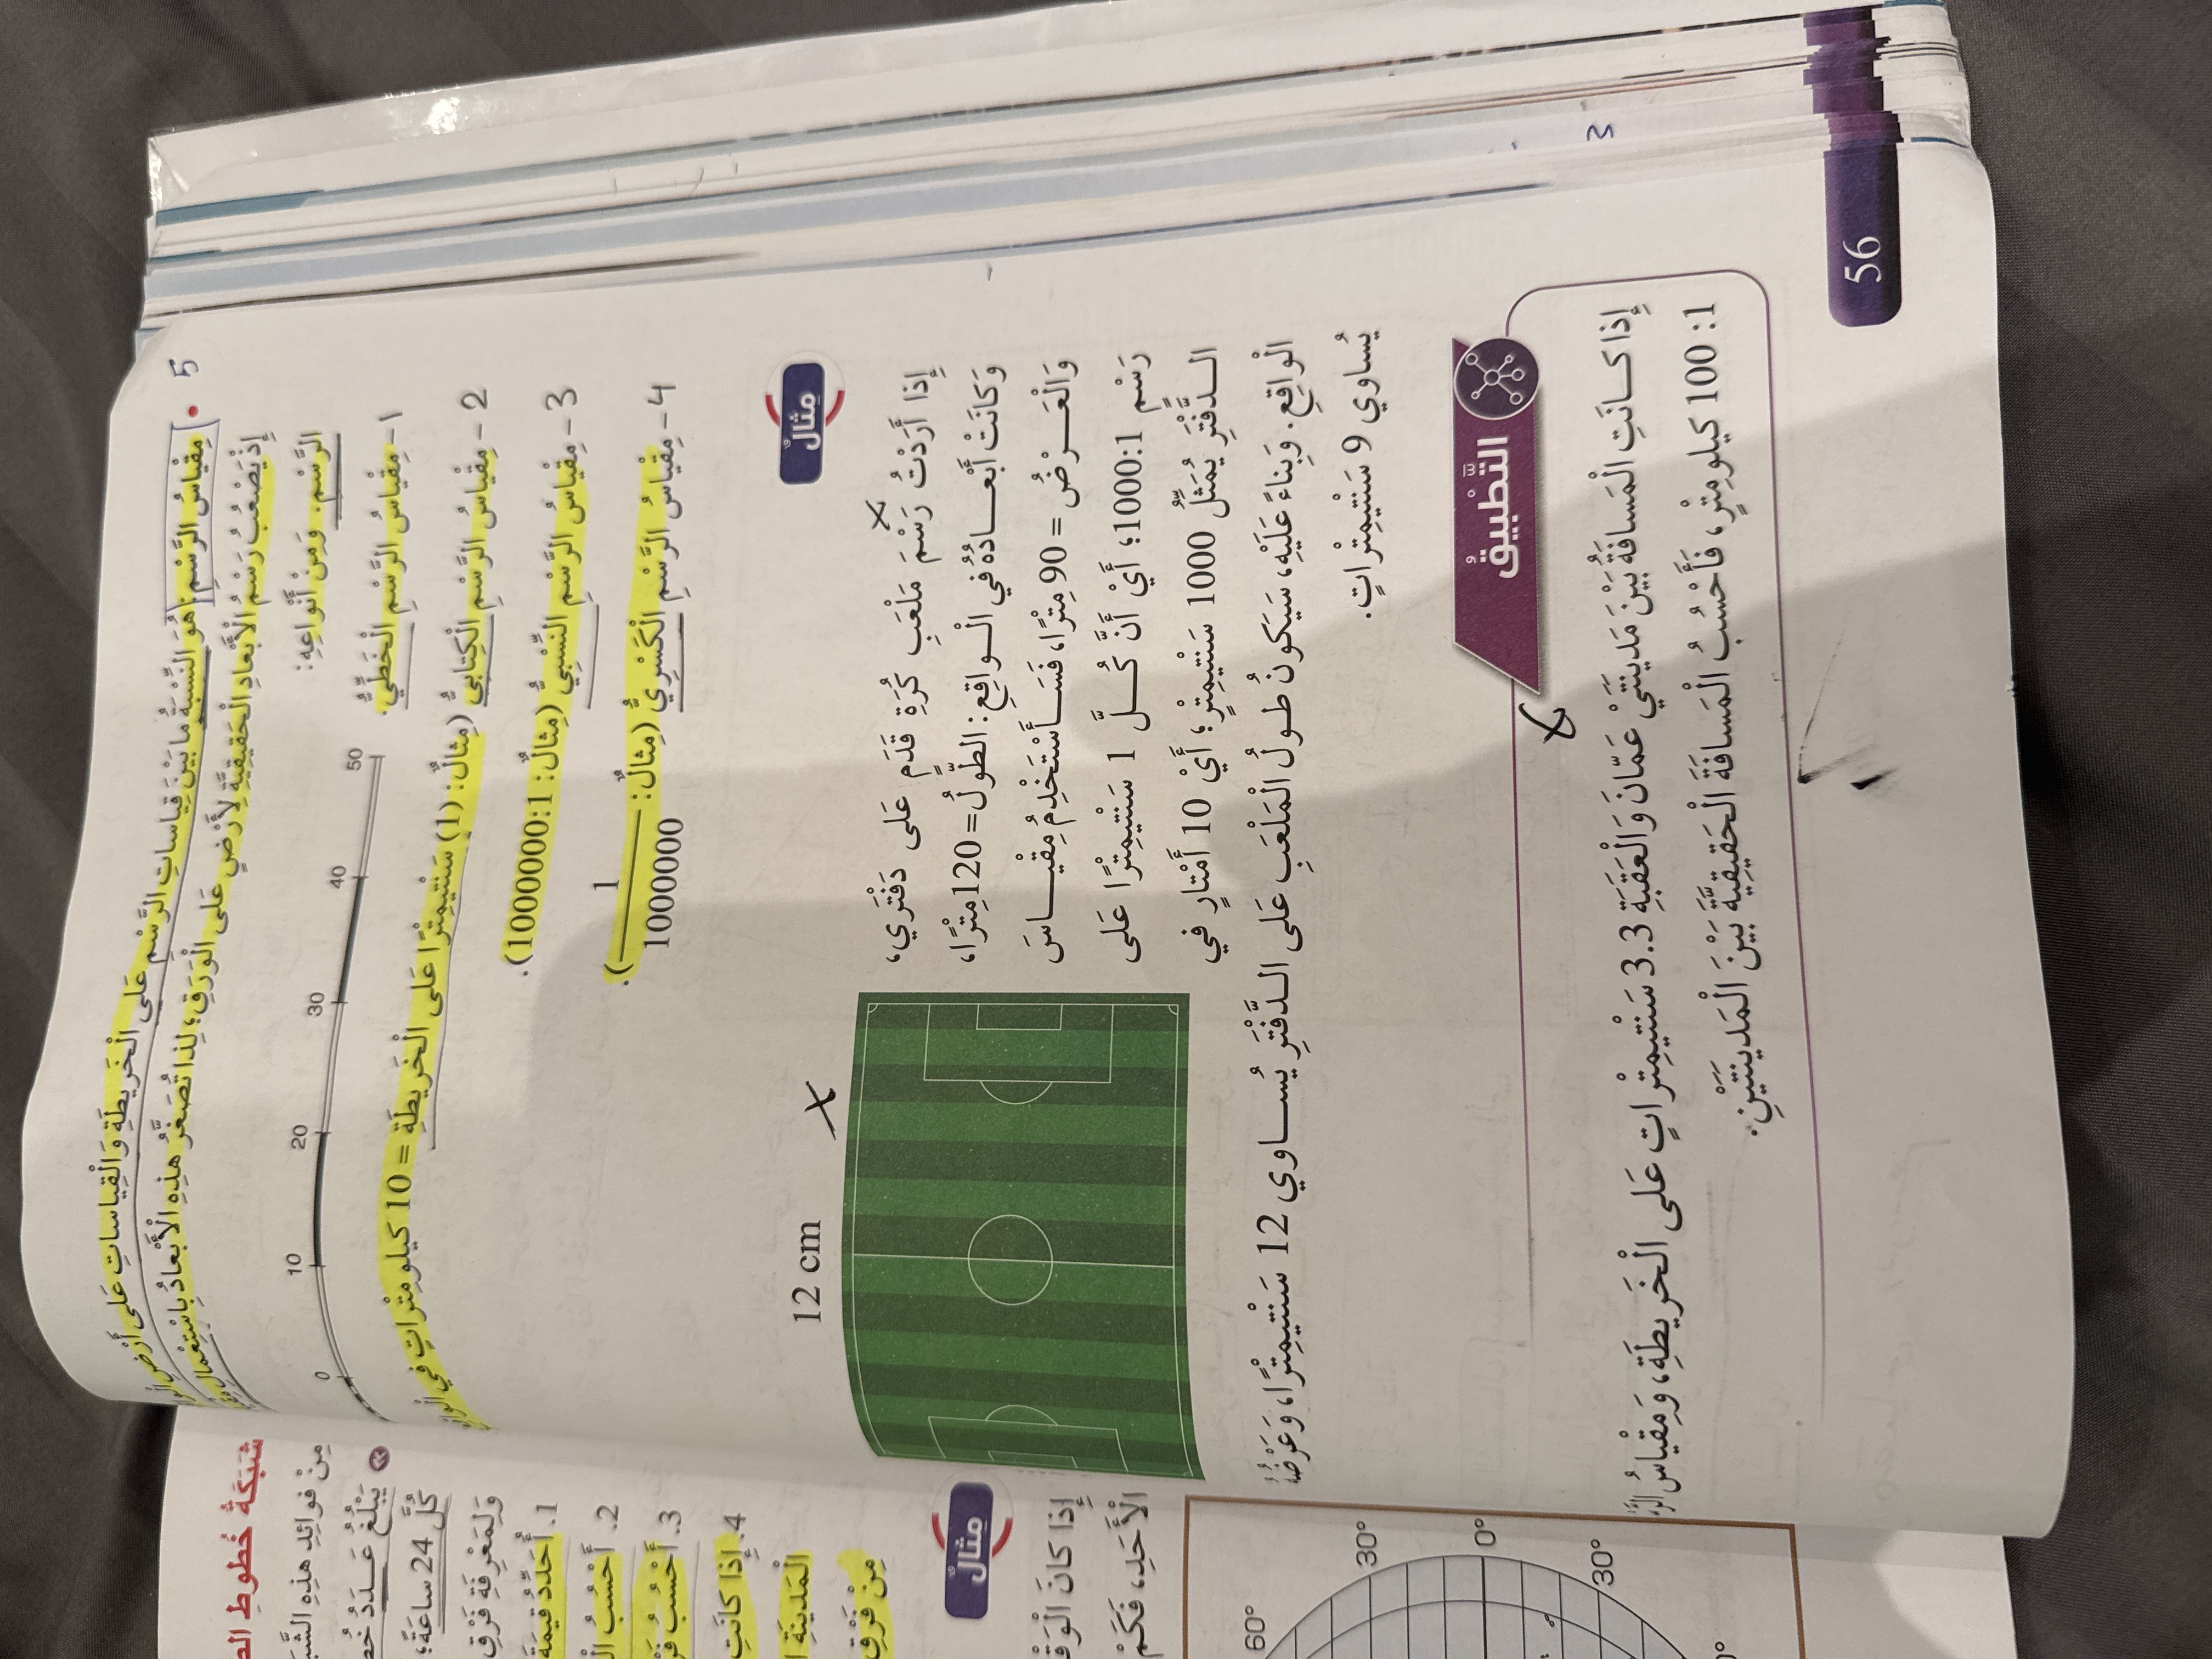 5
• مِقْياسُ الرَّسْمِ: هُوَ النِّسْبَةُ ما بَيْنَ قِياساتِ الرَّسْمِ عَلى الْخَريطَةِ وَالْقِياساتِ عَلى أَرْضِ
إِذْ يَصْعُبُ رَسْمُ الْأَبْعادِ الْحَقيقِيَّةِ لِأَرْضٍ عَلى الْوَرَقِ؛ لِذا تُصَغَّرُ هذِهِ الْأَبْعادُ بِاسْتِعْمالِ
الرَّسْمِ. وَمِنْ أَنْواعِهِ:
1- مِقْياسُ الرَّسْمِ الْخَطِّيُّ.
50 40 30 20 10 0
2- مِقْياسُ الرَّسْمِ الْكِتابِيُّ (مِثالٌ: (1) سَنْتيمِتْرًا عَلى الْخَريطَةِ = 10 كيلو مِتْراتٍ في
3- مِقْياسُ الرَّسْمِ النِّسْبِيُّ (مِثالٌ: 1:1000000).
4- مِقْياسُ الرَّسْمِ الْكَسْرِيُّ (مِثالٌ: 1/1000000).
مِثالٌ
12 cm
إِذا أَرَدْتُ رَسْمَ مَلْعَبِ كُرَةِ قَدَمٍ عَلى دَفْتَري،
وَكانَتْ أَبْعادُهُ في الْواقِعِ: الطّولُ=120مِتْرًا،
وَالْعَرْضُ = 90 مِتْرًا، فَسَأَسْتَخْدِمُ مِقْياسَ
رَسْمٍ 1:1000؛ أَيْ أَنَّ كُلَّ 1 سَنْتيمِتْرًا عَلى
الدَّفْتَرِ يُمَثِّلُ 1000 سَنْتيمِتْرٍ؛ أَيْ 10 أَمْتارٍ في
الْواقِعِ. وَبِناءً عَلَيْهِ، سَيَكونُ طولُ الْمَلْعَبِ عَلى الدَّفْتَرِ يُساوي 12 سَنْتيمِتْرًا، وَعَرْضُهُ
يُساوي 9 سَنْتيمِتْراتٍ.
التَّطْبيقُ
إِذا كانَتِ الْمَسافَةُ بَيْنَ مَدينَتَيْ عَمّانَ وَالْعَقَبَةِ 3.3 سَنْتيمِتْراتٍ عَلى الْخَريطَةِ، وَمِقْياسُ
1: 100 كيلومِتْرٍ، فَأَحْسُبُ الْمَسافَةَ الْحَقيقِيَّةَ بَيْنَ الْمَدينَتَيْنِ.
56
شَبَكَةُ خُطوطِ
مِنْ فَوائِدِ هذِهِ
يَبْلُغُ عَدَدُ
كُلَّ 24 ساعَةً؛
وَلِمَعْرِفَةِ فَرْقِ
1. أُحَدِّدُ قيمَةَ
2. أَحْسُبُ
3. أَحْسُبُ
4. إِذا كانَتِ
الْمَدينَةِ
مِنْ فَرْقِ
مِثالٌ
إِذا كانَ
الْأَحَدِ، فَكَمْ
60°
30°
0°
30°